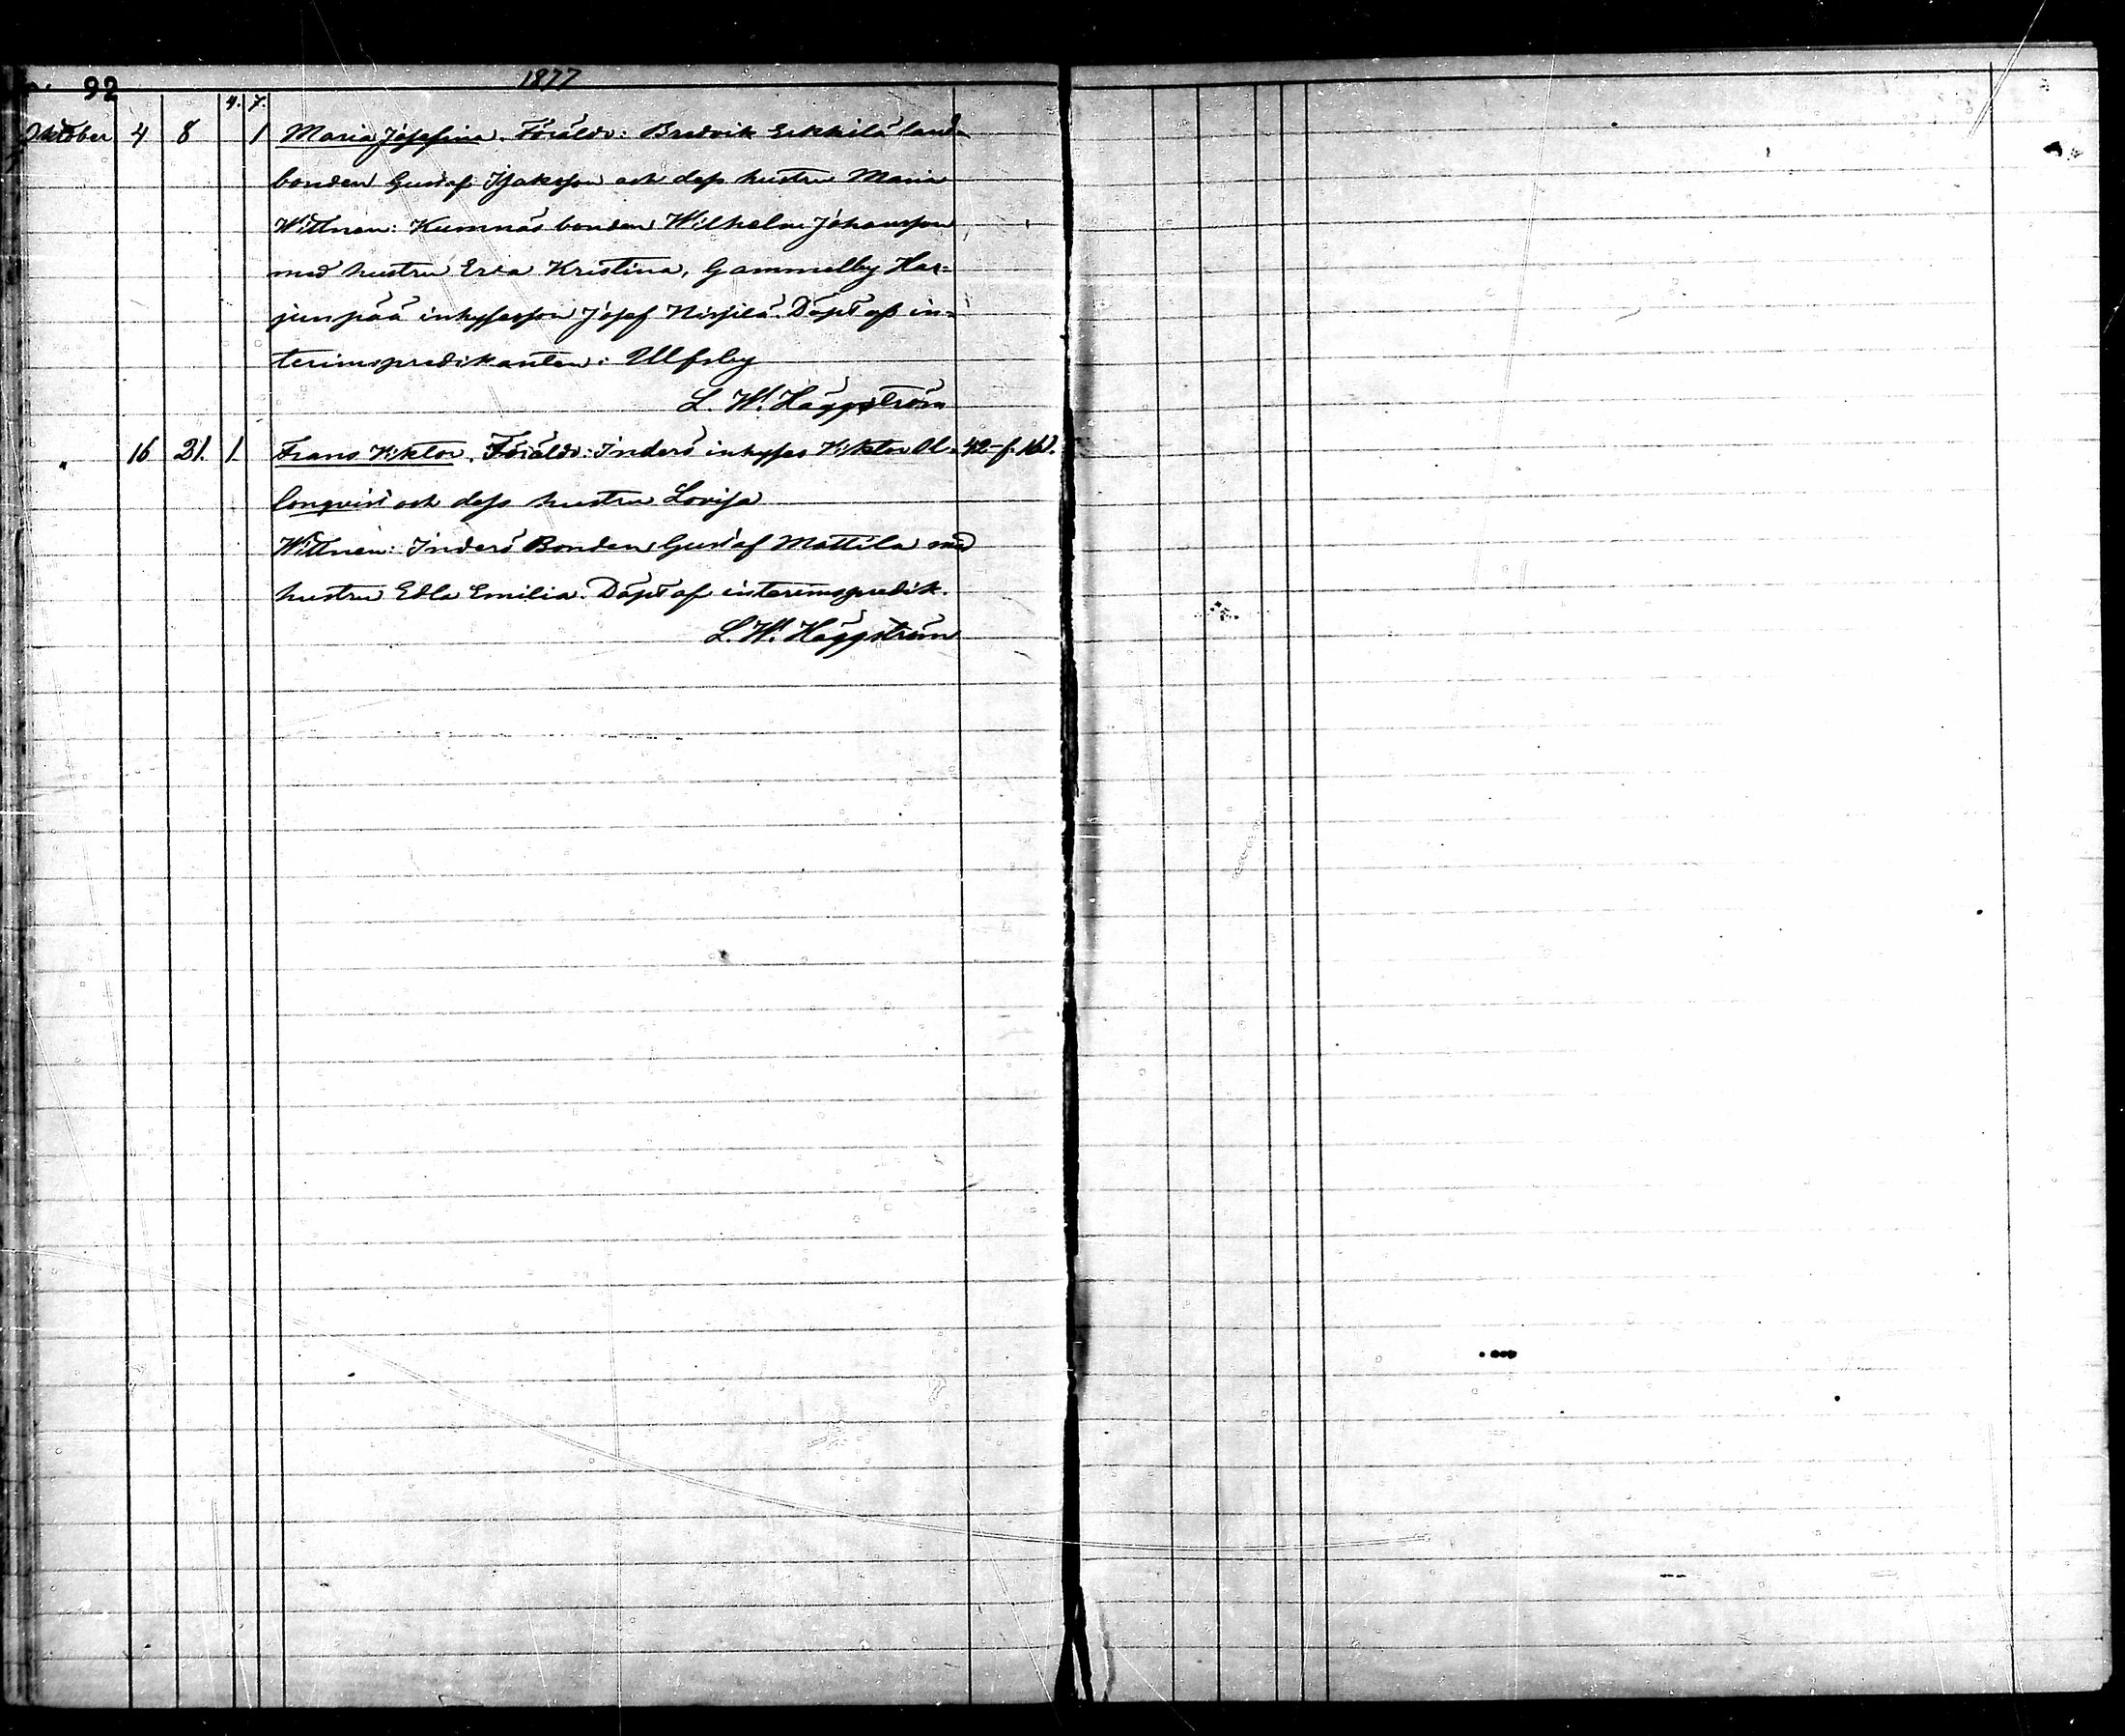 92
1877
4. 7.
Oktober 4 8 1 Maria Josefina. Föräldr: Bredvik Erkkilä land-
bonden Gustaf Isaksson och dess hustru Maria
Wittnen: Kumnäs bonden Wilhelm Johansson
med hustru Eva Kristina, Gammelby Har-
junpää inhysesson Josef Nissilä. Döpt af in-
terimspredikanten i Ulfsby
L. W. Häggström
" 16 21. 1 Frans Viktor. Föräldr: Inderö inhyses Viktor Ol- 42-f. 16/
lonqvist och dess hustru Lovisa
Wittnen: Inderö Bonden Gustaf Mattila med
hustru Edla Emilia. Döpt af interimspredik.
L. W. Häggström